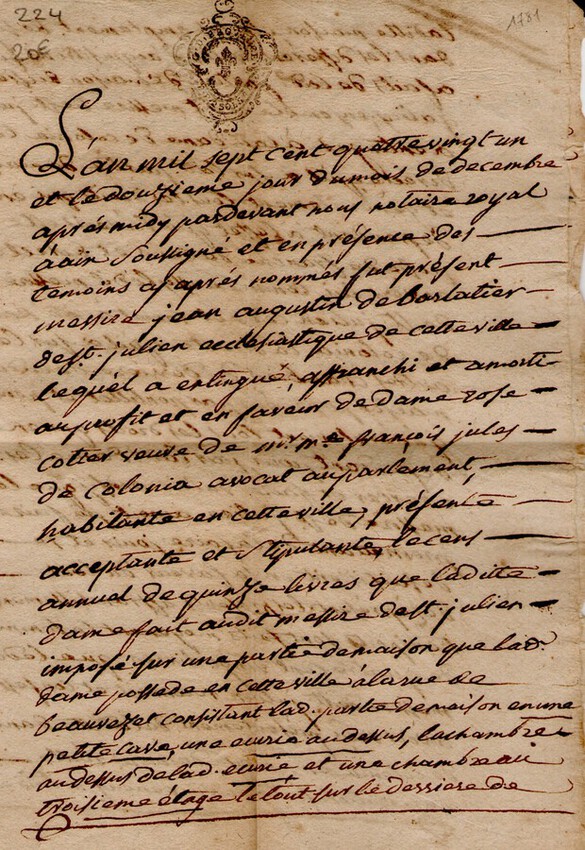 224
1781
20€
L'an mil sept cent quattre vingt un
et le douzieme jour du mois de decembre
aprés midy pardevant nous notaire royal
à aix soussigné et en présence des
temoins cy aprés nommés fut présent
messire jean augustin de barlatier
de st. julien ecclesiastique de cette ville
lequel a enteigné, affranchi et amorti
au profit et en faveur de dame rose
cotter veuve de mr. me. françois jules
de colonia avocat au parlement,
habitante en cette ville, présente
acceptante et stipulante, le cens
annuel de quinze livres que laditte
dame fait audit messire de st. julien
imposé sur une partie de maison que lad.
dame possede en cette ville à la rue de
beauvezet consistant lad. partie de maison en une
petite cave, une ecurie au dessus, la chambre
au dessus de lad. ecurie et une chambre au
troisieme étage le tout sur le derriere de